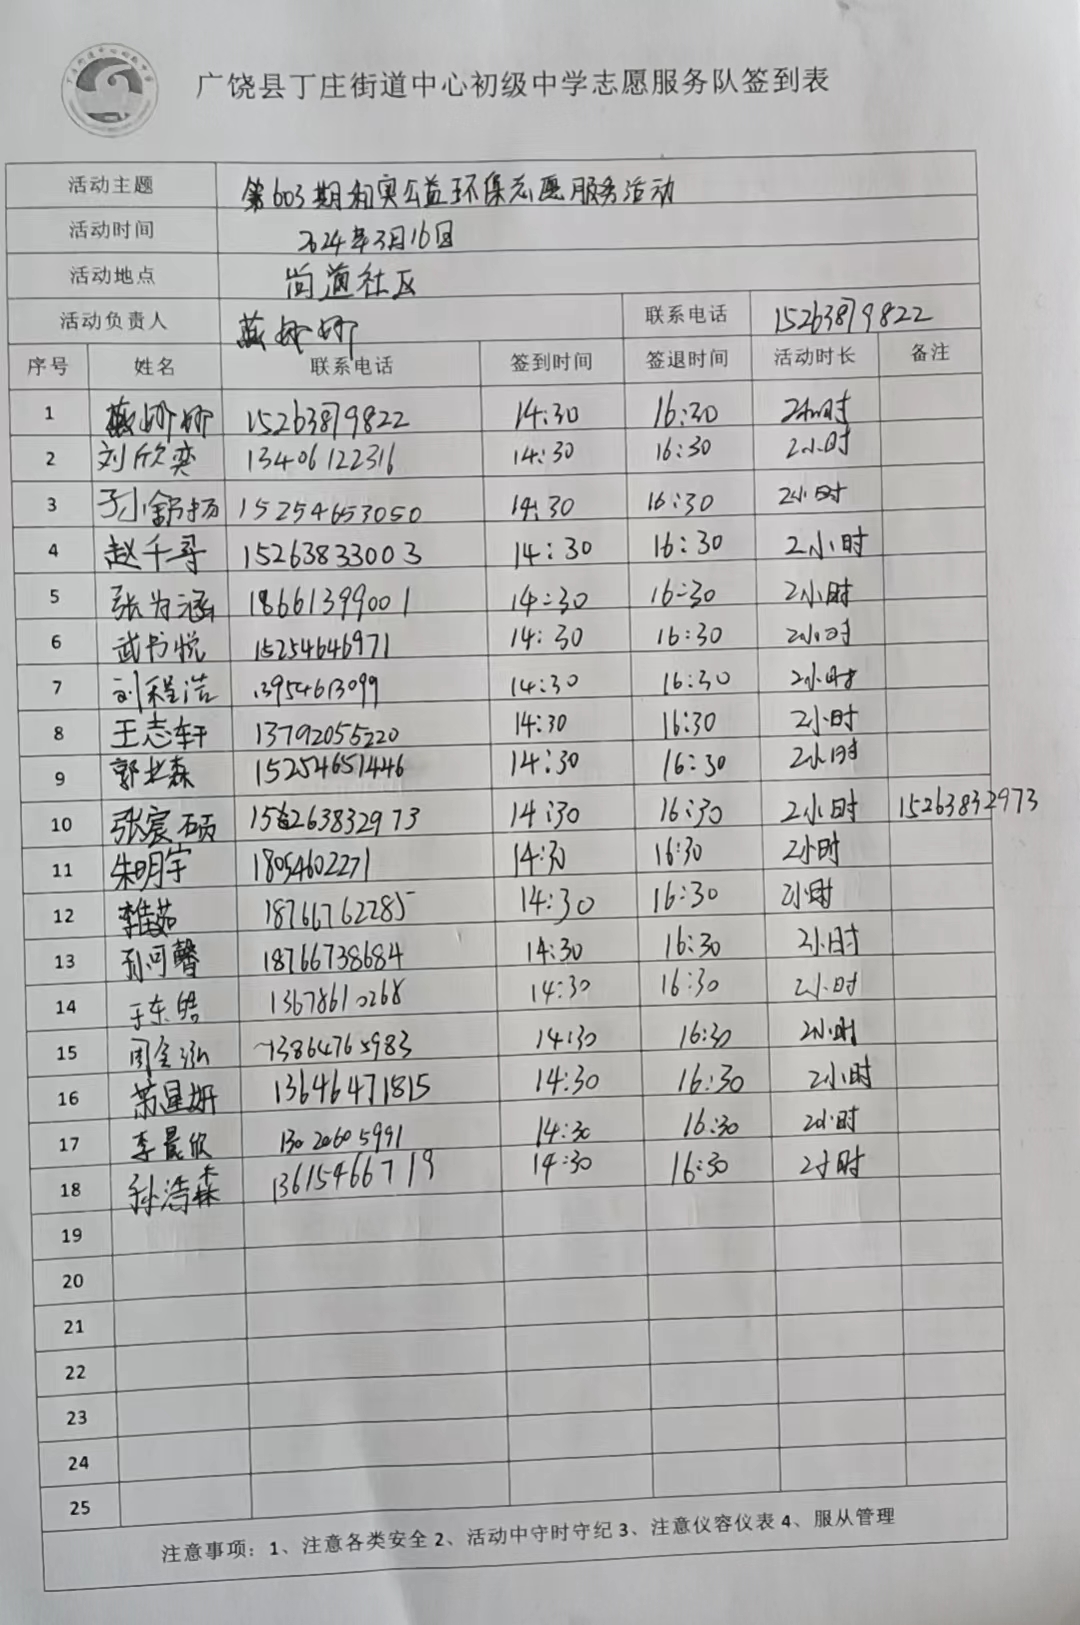 广饶县丁庄街道中心初级中学志愿服务队签到表
活动主题 第603期和实公益环集志愿服务活动
活动时间 2024年3月16日
活动地点 尚道社区
活动负责人 燕娜娜 联系电话 15263879822
序号 姓名 联系电话 签到时间 签退时间 活动时长 备注
1 燕娜娜 15263879822 14:30 16:30 2小时
2 刘欣奕 13406122316 14:30 16:30 2小时
3 孙舒扬 15254653050 14:30 16:30 2小时
4 赵千寻 15263833003 14:30 16:30 2小时
5 张为涵 18661399001 14:30 16:30 2小时
6 武书悦 15254646971 14:30 16:30 2小时
7 刘程浩 13954613099 14:30 16:30 2小时
8 王志轩 13792055220 14:30 16:30 2小时
9 郭书森 15254651446 14:30 16:30 2小时
10 张宸硕 15263832973 14:30 16:30 2小时 15263832973
11 朱明宇 18054602271 14:30 16:30 2小时
12 李佳茹 18766762285 14:30 16:30 2小时
13 孙可馨 18766738684 14:30 16:30 2小时
14 于东皓 13678610268 14:30 16:30 2小时
15 周金泓 13864765983 14:30 16:30 2小时
16 萧星妍 13646471815 14:30 16:30 2小时
17 李晨欣 13020605991 14:30 16:30 2小时
18 孙浩森 13615466719 14:30 16:30 2小时
19
20
21
22
23
24
25
注意事项：1、注意各类安全 2、活动中守时守纪 3、注意仪容仪表 4、服从管理